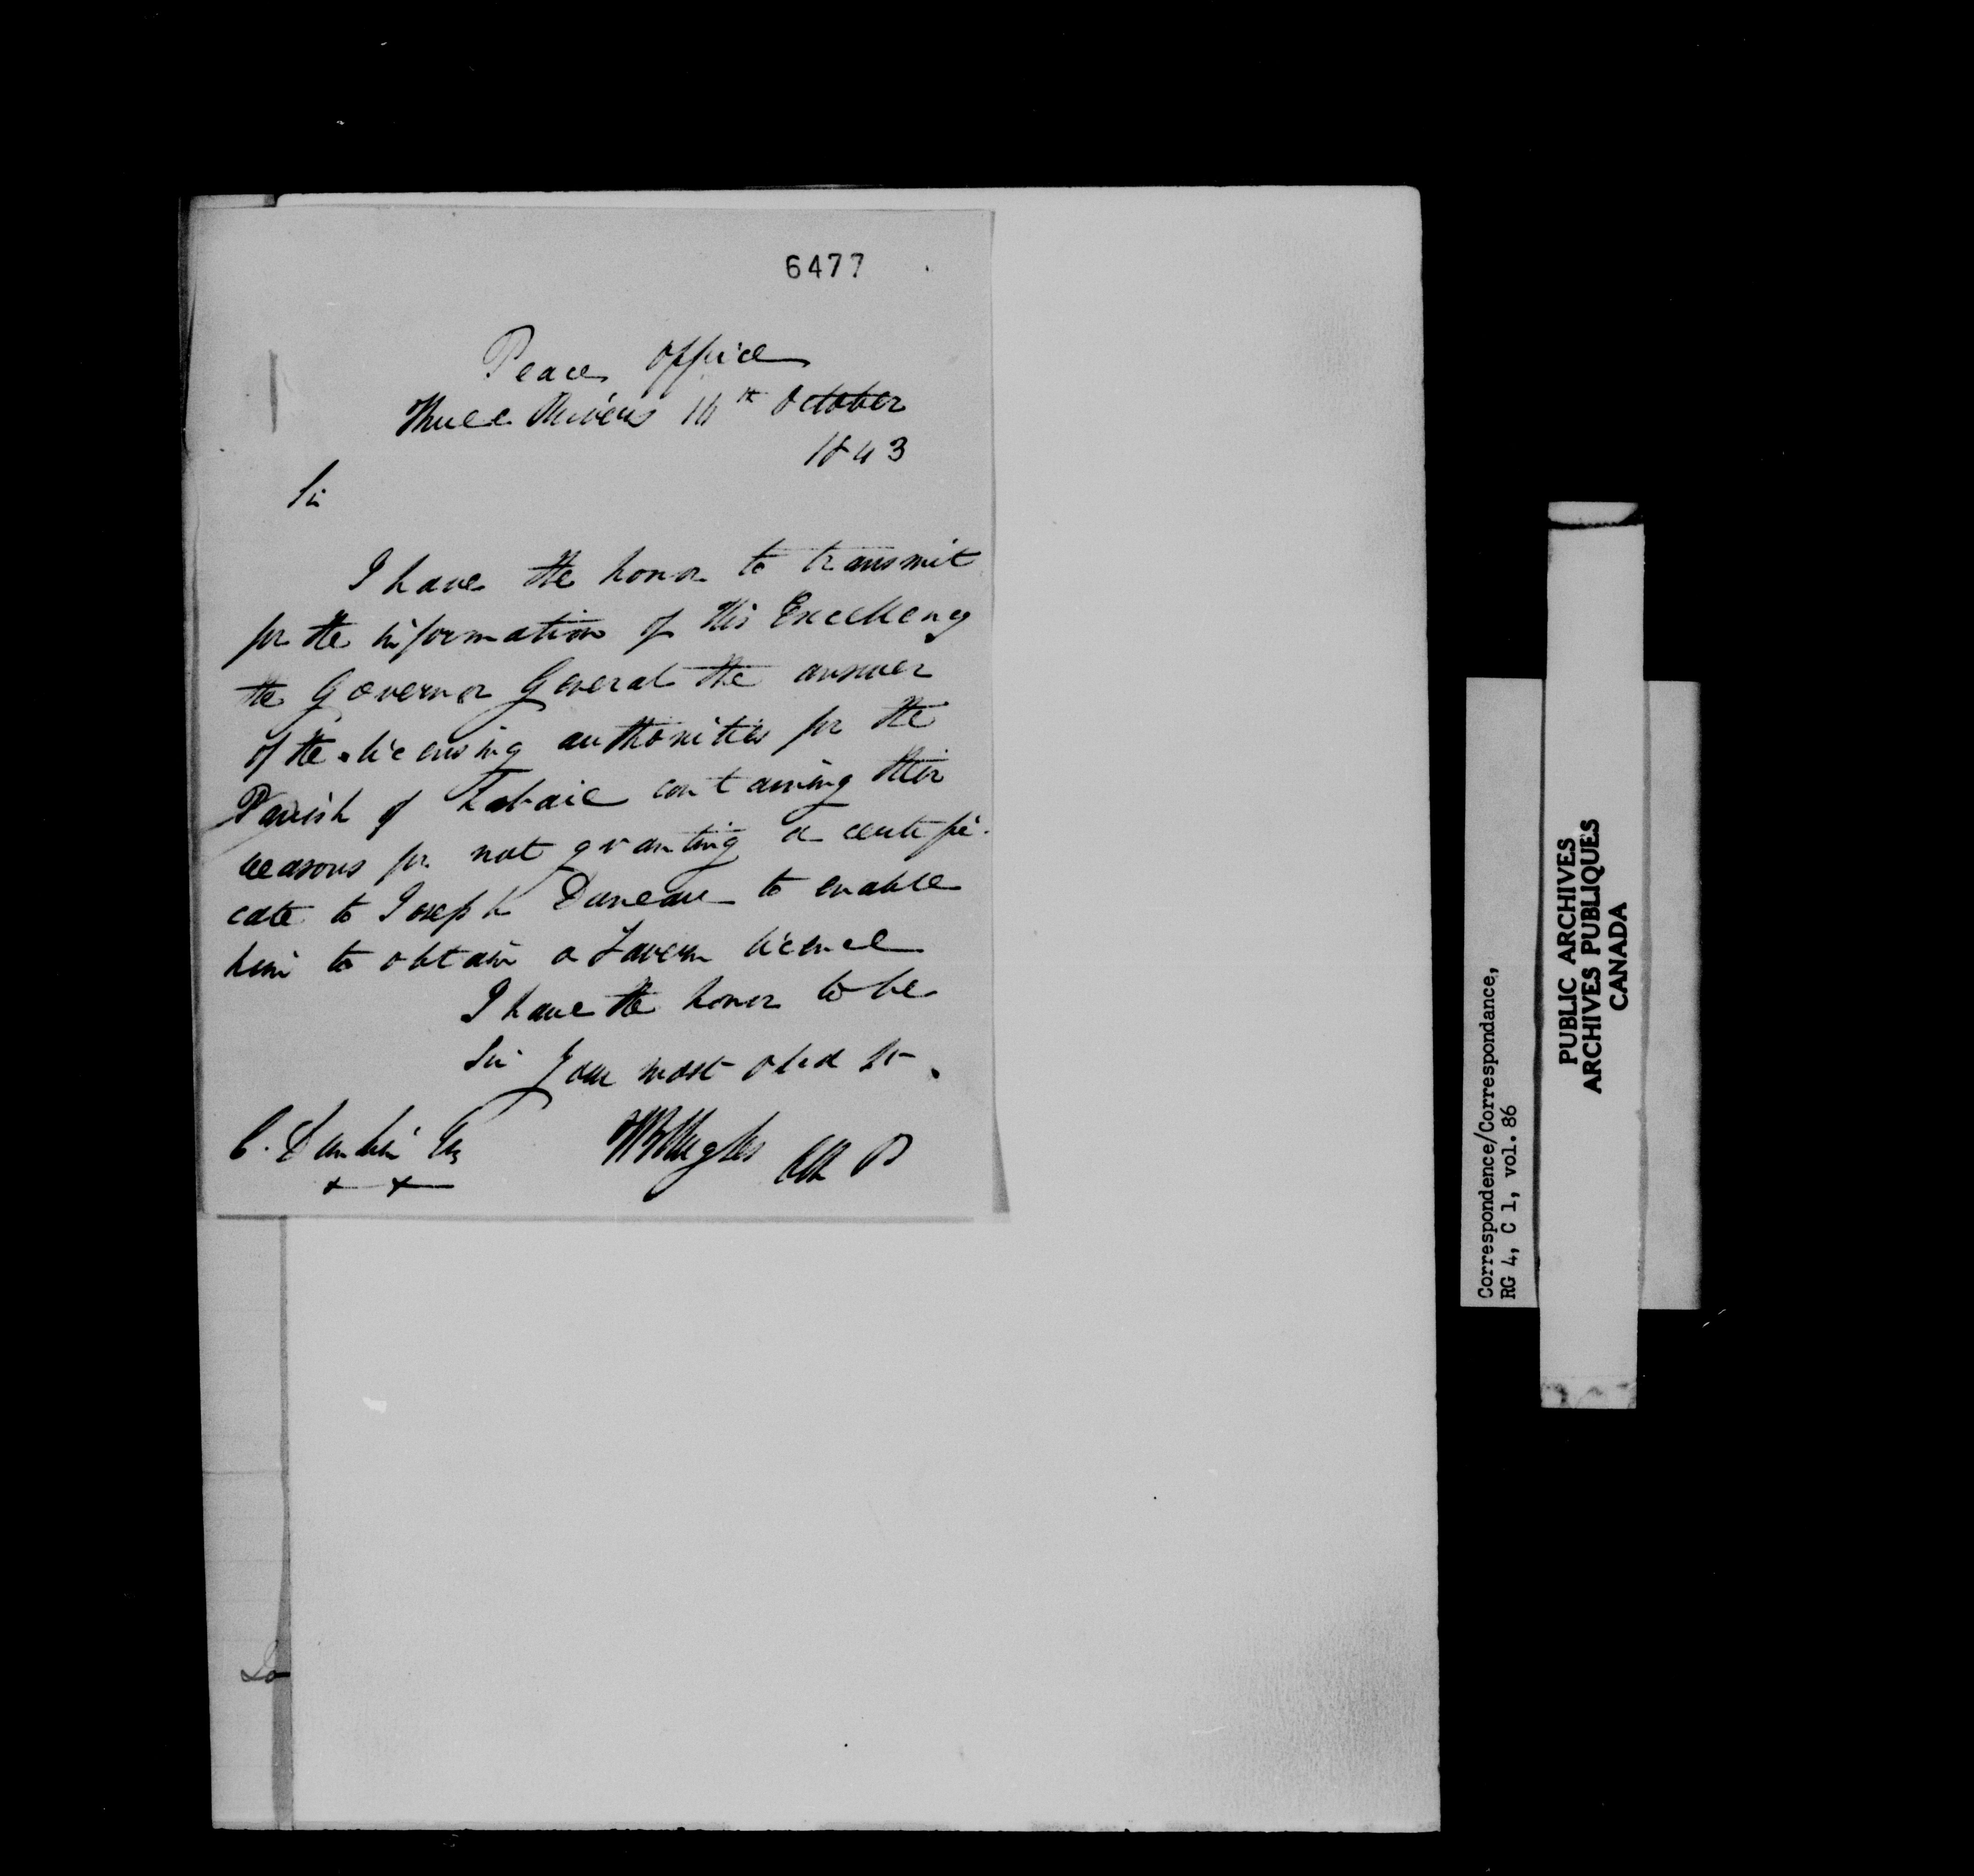 6477
Peace Office
Three Rivers 14th October
1843
Sir
I have the honor to transmit
for the information of His Excellency
the Governor General the answer
of the licensing authorities for the
Parish of Labaie containing their
reasons for not granting a certifi-
cate to Joseph Duneau to enable
him to obtain a Tavern licence
I have the honor to be
Sir Your most obed st.
C. Dunkin Esq
Hughes
Correspondence/Correspondance,
RG 4, C 1, vol. 86
PUBLIC ARCHIVES
ARCHIVES PUBLIQUES
CANADA